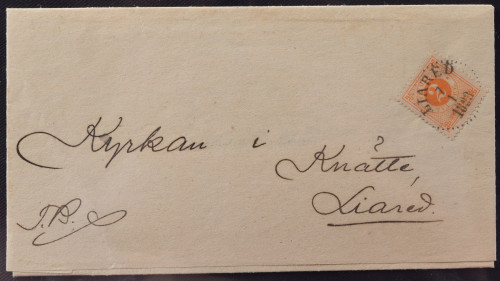 LIARED
7
1
1889
2
Kyrkan i Knätte,
Liared.
T.B.